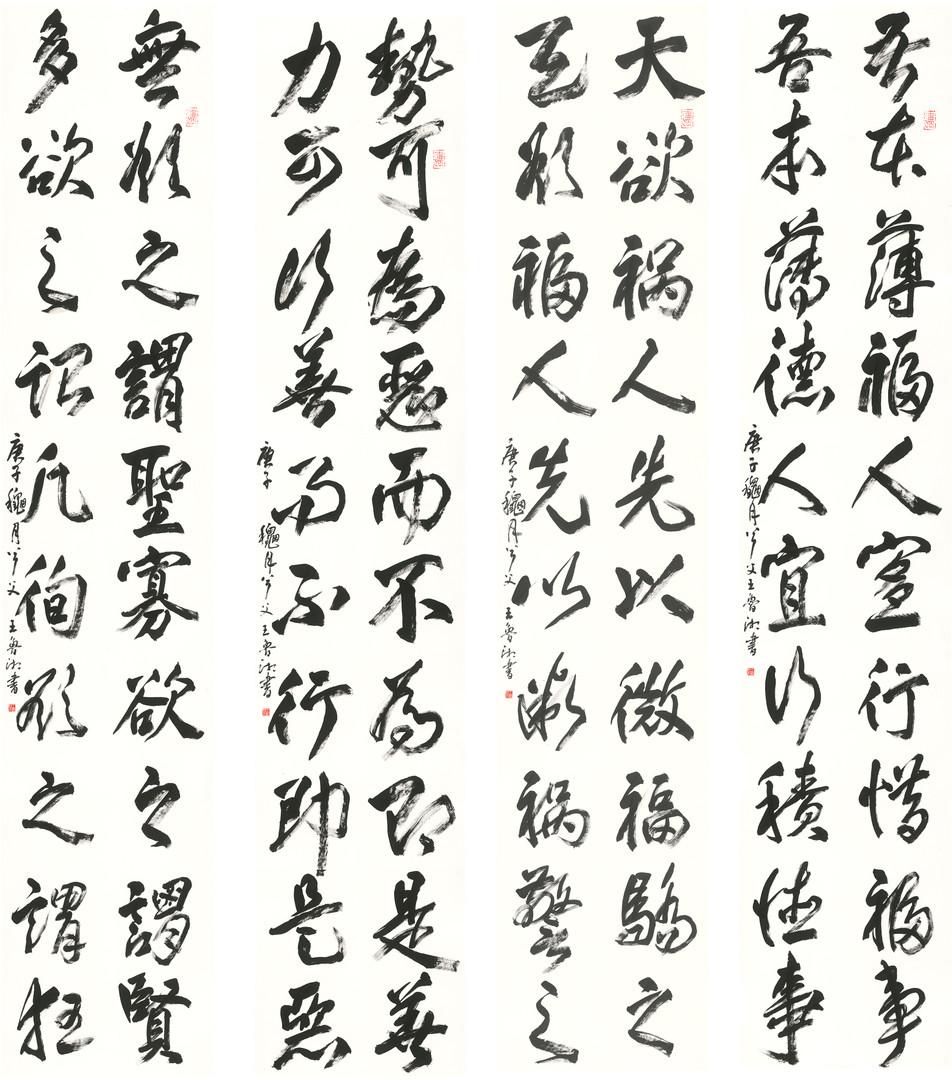 吾本薄福人宜行惜福事
吾本薄德人宜行積德事
庚子穐月 王魯湘書
天欲祸人先以微福驕之
天欲福人先以微祸警之
庚子穐月 王魯湘書
勢可為惡而不為即是善
力可行善而不行即是惡
庚子穐月 王魯湘書
無欲之謂聖寡欲之謂賢
多欲之謂凡徇欲之謂狂
庚子穐月 王魯湘書